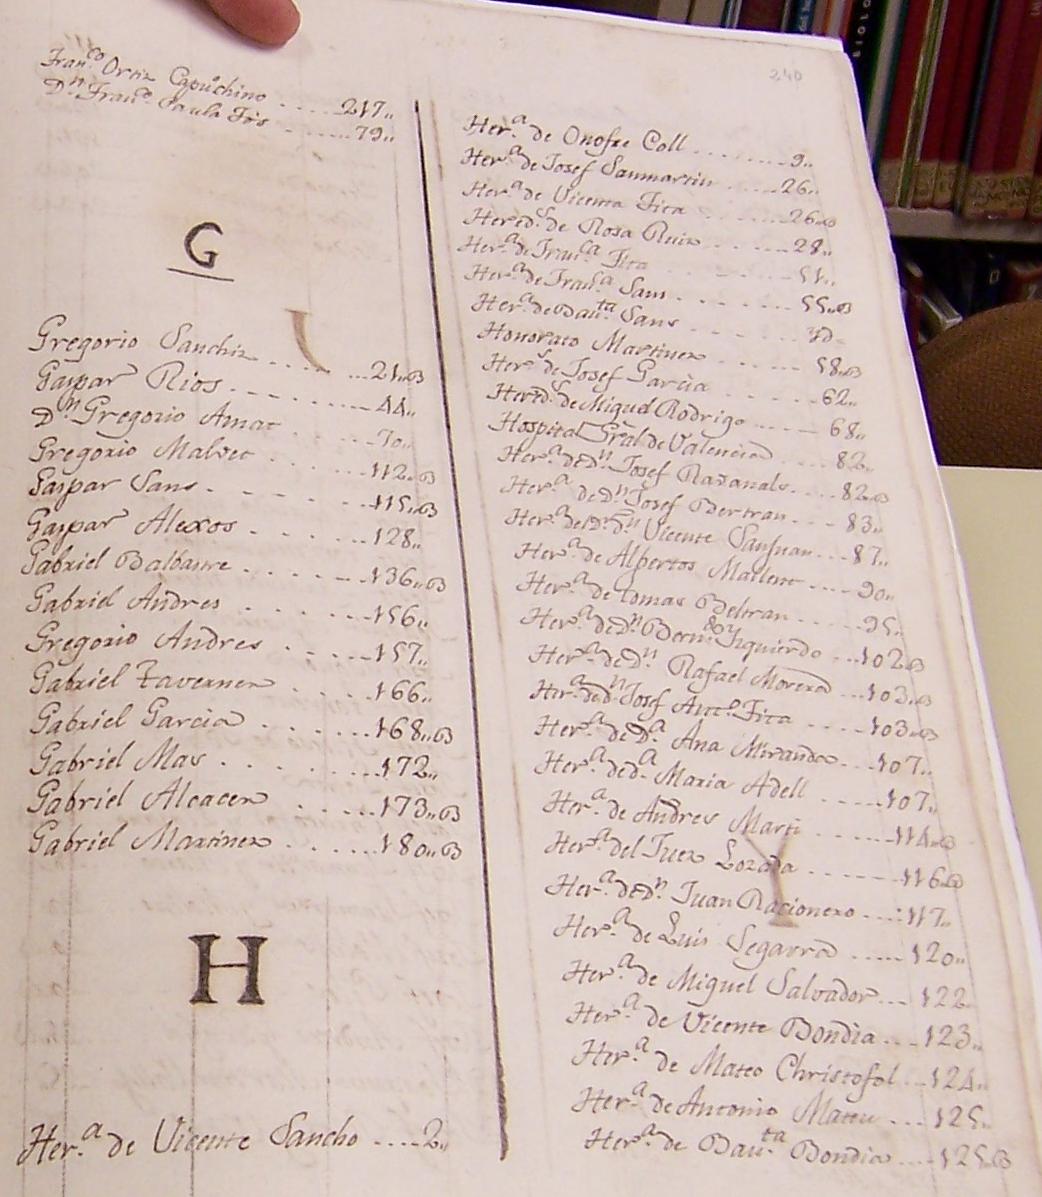 240
Fran.co Ortiz Capuchino ....217,,
D.n Fran.co Paula Fos ......79,,
G
Gregorio Sanchiz ......21,,B
Gaspar Rios ........44,,
D.n Gregorio Amat ....70,,
Gregorio Malvet ......112,,B
Gaspar Sans ......115,,B
Gaspar Alexos ......128,,
Gabriel Balbastre ......136,,B
Gabriel Andres ......156,,
Gregorio Andres ......157,,
Gabriel Taverner ......166,,
Gabriel Garcia ......168,,B
Gabriel Mas ......172,,
Gabriel Alcacer ......173,,B
Gabriel Martinez ......180,,B
H
Her.a de Vicente Sancho ....2,,
Her.a de Onofre Coll ........9,,
Her.a de Josef Sanmartin ......26,,
Her.a de Vicenta Fita ......26,,B
Hered.s de Rosa Ruiz ......28,,
Her.a de Fran.ca Fita ......51,,
Her.a de Fran.ca Sans ......55,,B
Her.a de Bau.ta Sans
Honorato Martinez ......58,,B
Her.s de Josef Garcia ......62,,
Hered.s de Miguel Rodrigo ......68,,
Hospital Gral de Valencia ....82,,
Her.a de d.n Josef Rabanals ....82,,B
Her.a de d.n Josef Bertran ....83,,
Her.a del D.r d.n Vicente Sanjuan ...87,,
Her.a de Albertos Mailent ....90,,
Her.a de tomas Beltran ......95,,
Her.a de d.n Bern.do Izquierdo ...102,,B
Her.a de D.n Rafael Morera ...103,,B
Her.a de d.n Josef Ant.o Fita ....103,,B
Her.a de D.a Ana Miranda ...107,,
Her.a de d.a Maria Adell .....107,,
Her.a de Andres Marti ......114,,B
Her.a del Juez Lozada ......116,,B
Her.a de d.n Juan Racionero ....117,,
Her.a de Luis Segarra .....120,,
Her.a de Miguel Salvador ...122,,
Her.a de Vicente Bondia ...123,,
Her.a de Mateo Christofol ..124,,
Her.a de Antonio Mateu ...125,,
Her.a de Bau.ta Bondia ....125,,B